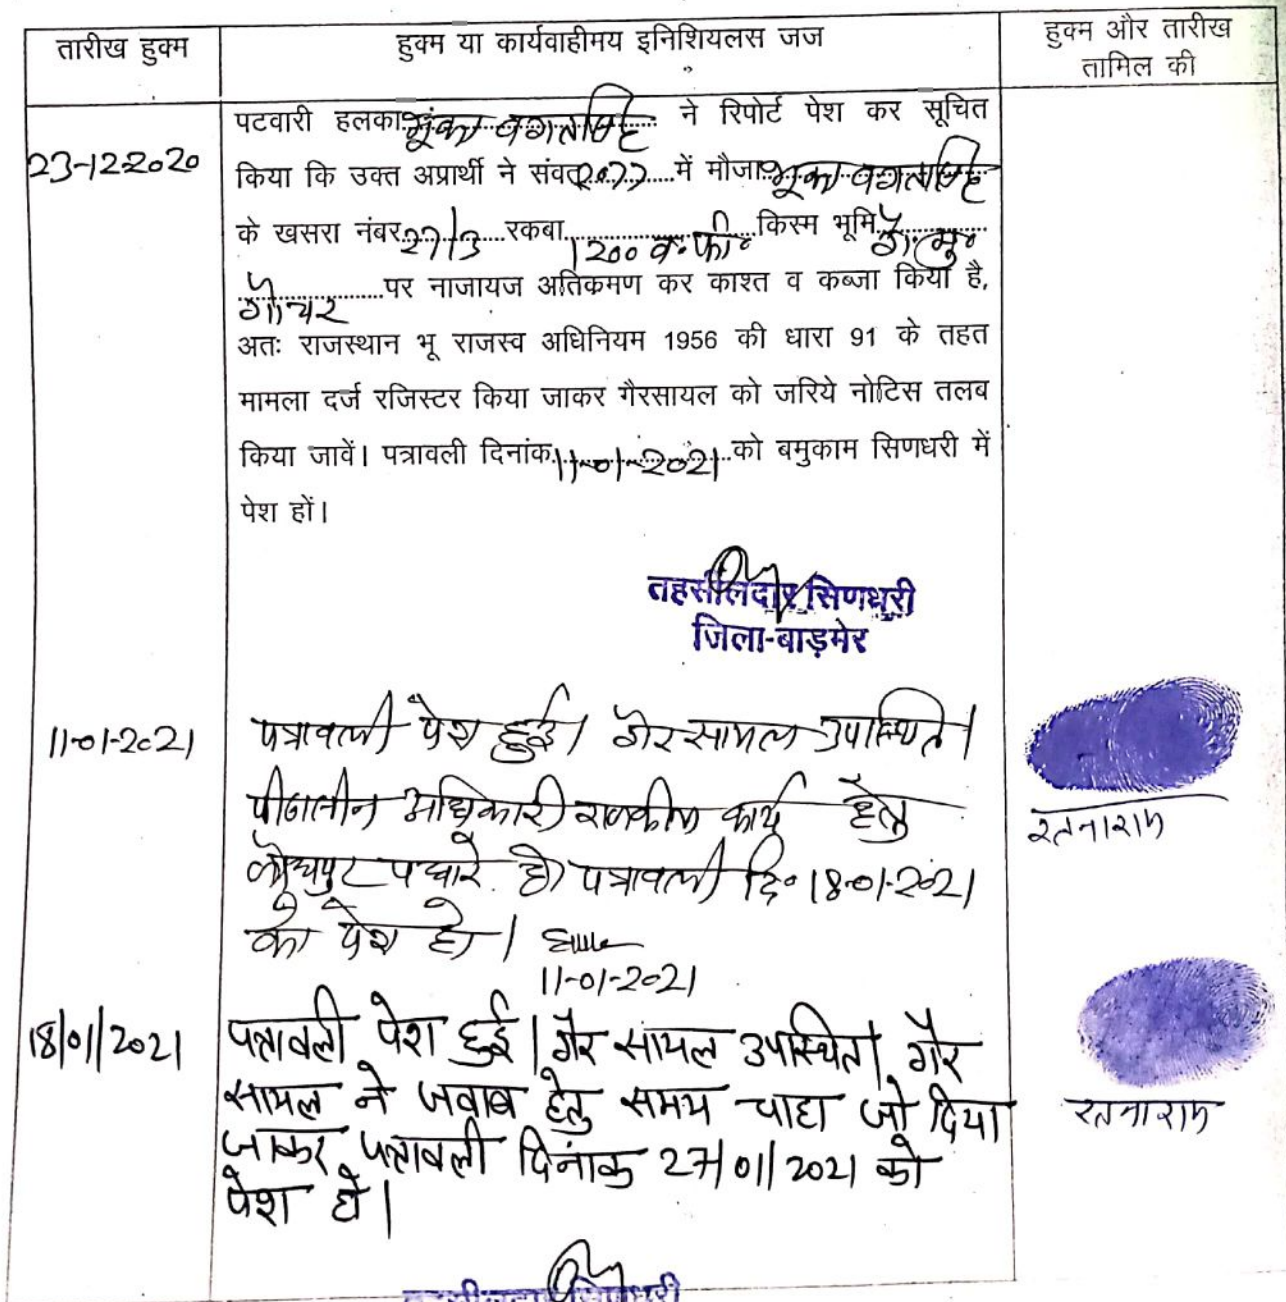 तारीख हुक्म
हुक्म या कार्यवाहीमय इनिशियलस जज
हुक्म और तारीख
तामिल की
23-12-2020
पटवारी हलका भूंका भगतसिंह ने रिपोर्ट पेश कर सूचित
किया कि उक्त अप्रार्थी ने संवत 2077 में मौजा भूका भगतसिंह
के खसरा नंबर 27/3 रकबा 1200 व.फी. किस्म भूमि गै.मु.
गोचर पर नाजायज अतिकमण कर काश्त व कब्जा किया है,
अतः राजस्थान भू राजस्व अधिनियम 1956 की धारा 91 के तहत
मामला दर्ज रजिस्टर किया जाकर गैरसायल को जरिये नोटिस तलब
किया जावें। पत्रावली दिनांक 11-01-2021 को बमुकाम सिणधरी में
पेश हों।
तहसीलदार सिणधरी
जिला-बाड़मेर
11-01-2021
पत्रावली पेश हुई। गैर सायल उपस्थित।
पीठासीन अधिकारी राजकीय कार्य हेतु
जोधपुर पधारे है। पत्रावली दि० 18-01-2021
को पेश हो।
11-01-2021
रतनाराम
18/01/2021
पत्रावली पेश हुई। गैर सायल उपस्थित। गैर
सायल ने जवाब हेतु समय चाहा जो दिया
जाकर पत्रावली दिनांक 27/01/2021 को
पेश हो।
रतनाराम
तहसीलदार सिणधरी